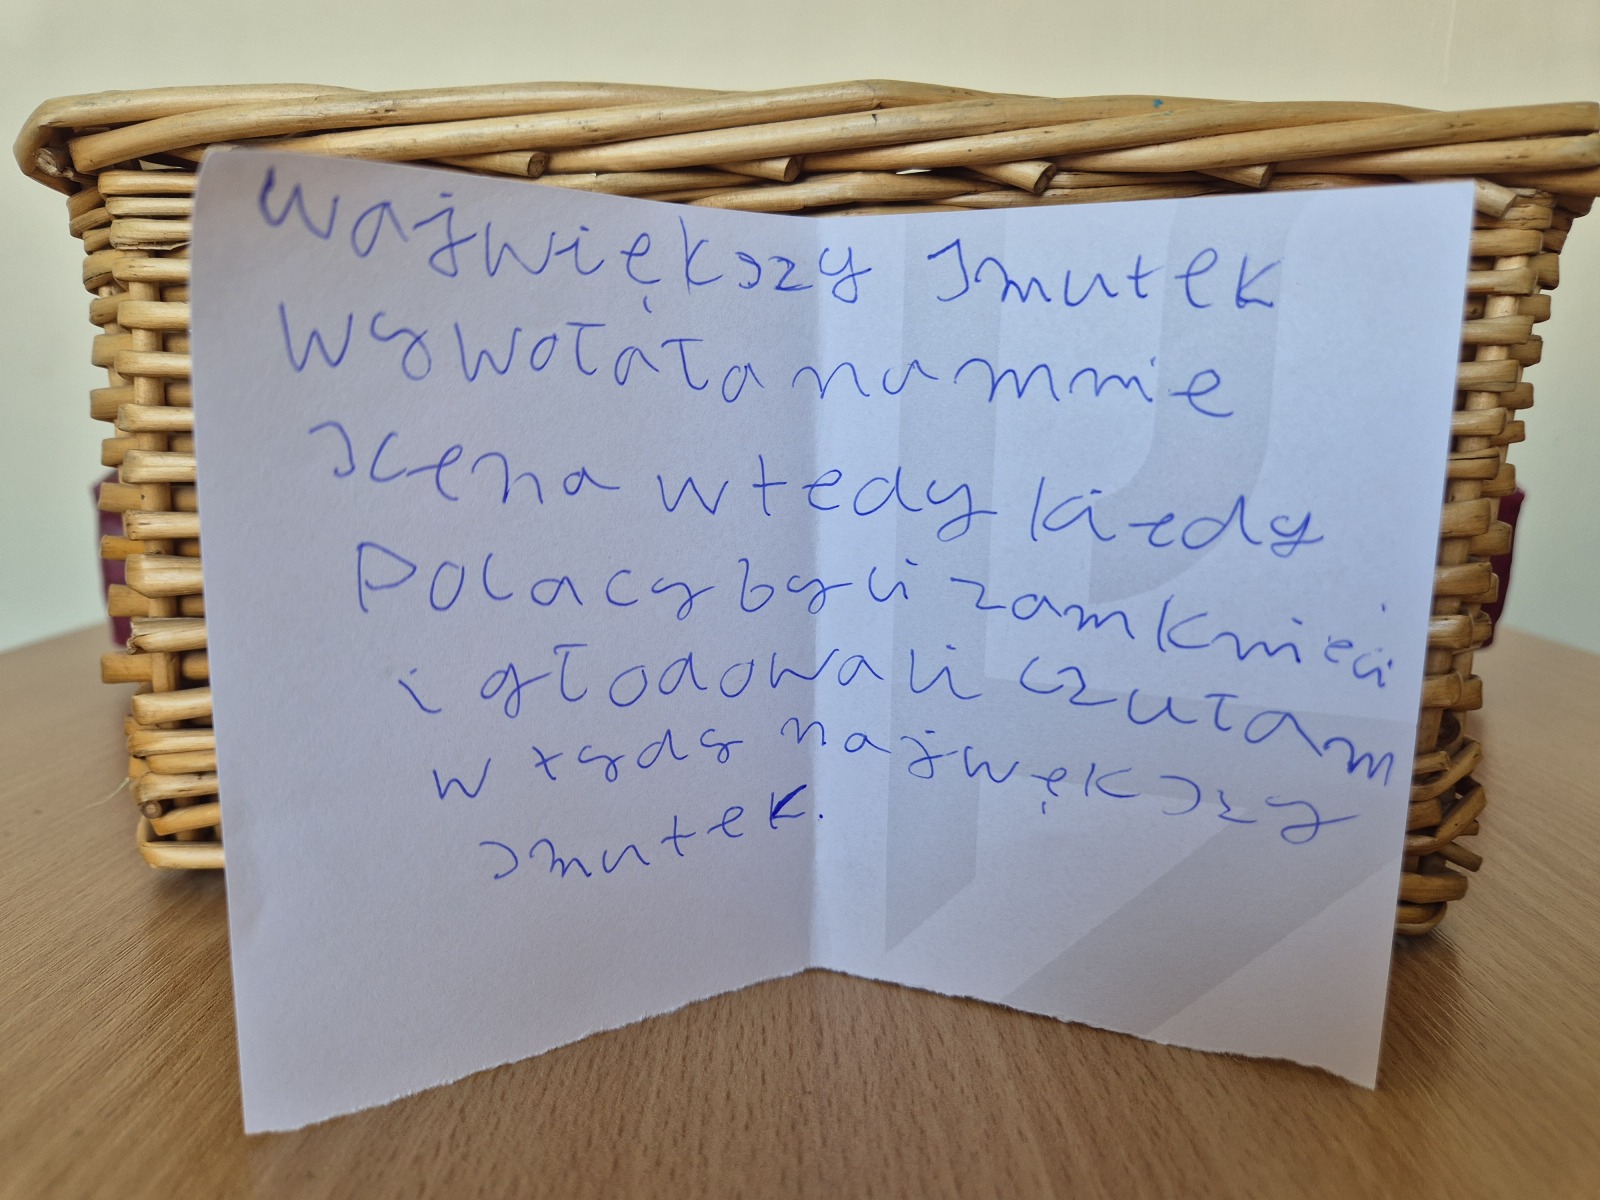 Największy smutek
wywołała na mnie
scena wtedy kiedy
Polacy byli zamknieci
i głodowali czułam
wtydy najwększy
smutek.